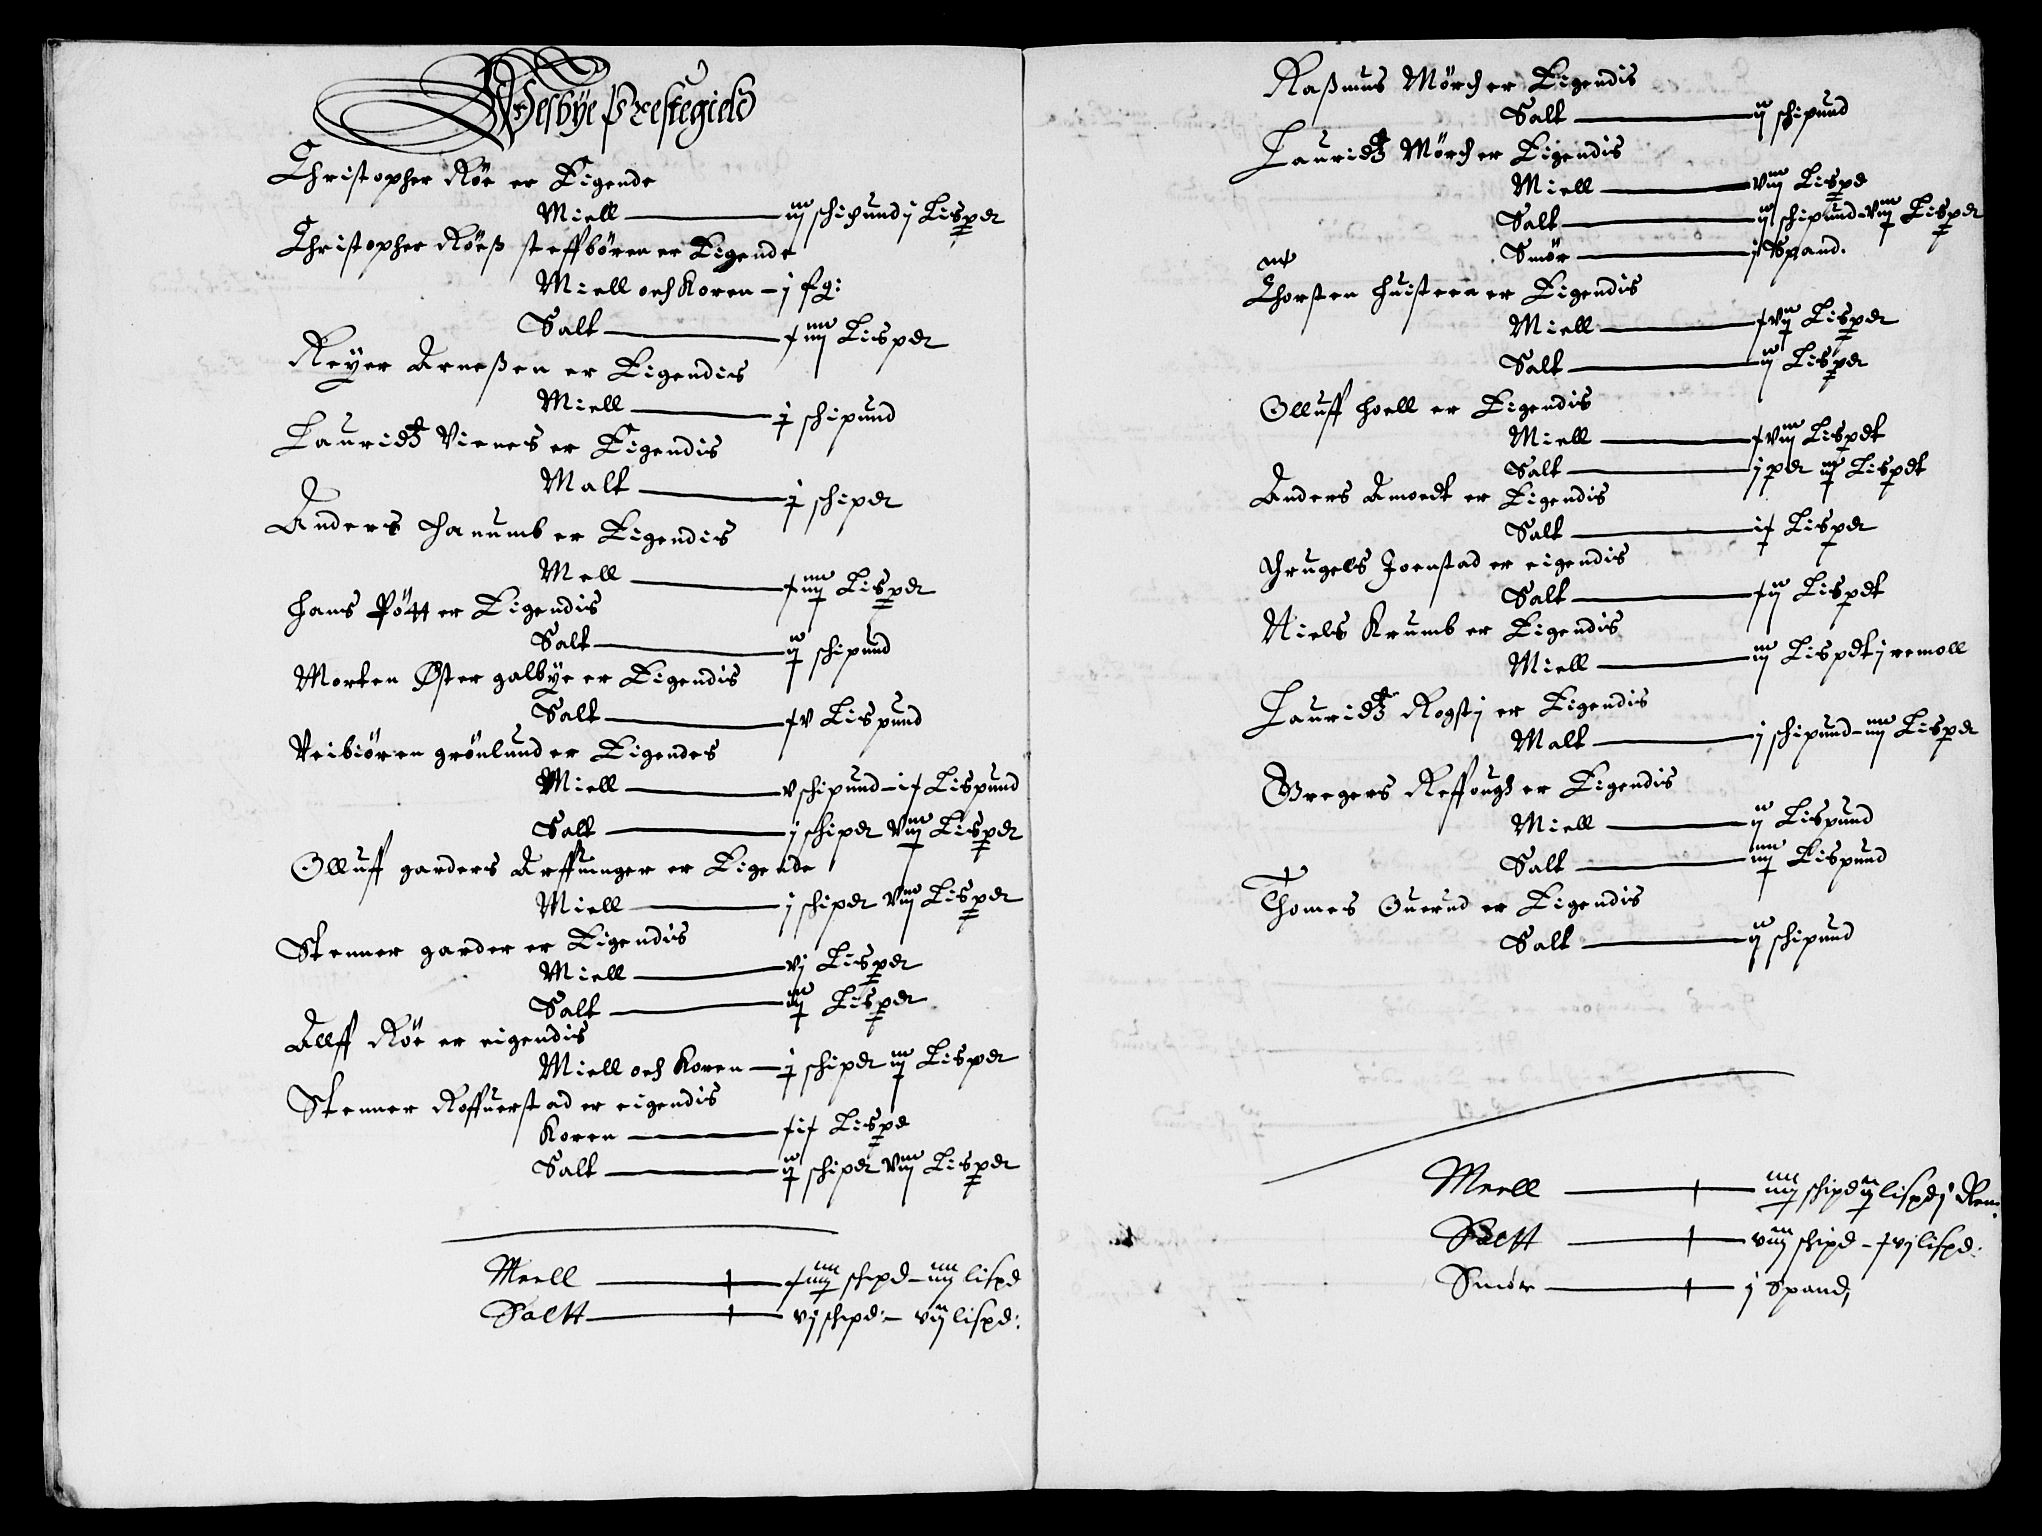 Wesbÿe Prestegield
Christopher Röe er Eigende
Miell — iij schipund j Lisper
Christopher Röeß steffbören er Eigende
Miell och Koren — j
Salt — Lisper
Reÿer Arneßen er Eigendis
Miell — schipund
Lauridtz Vienes er Eigendis
Malt — schiper
Anders Hanumb er Eigendis
Mell — Lisper
Hans Pött er Eigendis
Salt — schipund
Morten Øster galbÿe er Eigendis
Salt — xv Lispund
Veibiören grönlund er Eigendes
Miell — v schipund — Lispund
Salt — j schiper viij Lisper
Olluff garders Arffuinger er Eigende
Miell — j schiper viij Lisper
Stenner garder er Eigendis
Miell — vj Lisper
Salt — Lisper
Allff Röe er eigendis
Miell och Koren — schiper Lisper
Stenner Roffuerstad er eigendis
Koren — Lispd
Salt — schiper viij Lisper
Meell — schipd — iiij lispd
Saltt — vj schipd: — vij lispd:
Raßmus Mörch er Eigendis
Salt — ij schipund
Lauridtz Mörch er Eigendis
Miell — viij Lispd
Salt — ij schipund — viij Lisper
Smör — Spand.
Thorsten Huisteen er Eigendis
Miell — xvij Lisper
Salt — ij Lisper
Olluff Hoell er Eigendis
Miell — xviij Lispdt
Salt — j per Lispdt
Anders Amoedt er Eigendis
Salt — Lisper
Thrugels Joenstad er eigendis
Salt — xij Lispdt
Niels Krumb er Eigendis
Miell — iij Lispdt j remoll
Lauridtz Rogstj er Eigendis
Malt — j schipund — iiij Lisper
Gregers Reffough er Eigendis
Miell — ij Lispund
Salt — Lispund
Thomes Ouerud er Eigendis
Salt — ij schipund
Meell — schipd lispd j Rem:
Saltt — viij schipd — xvj lispd:
Smör — j Spand;